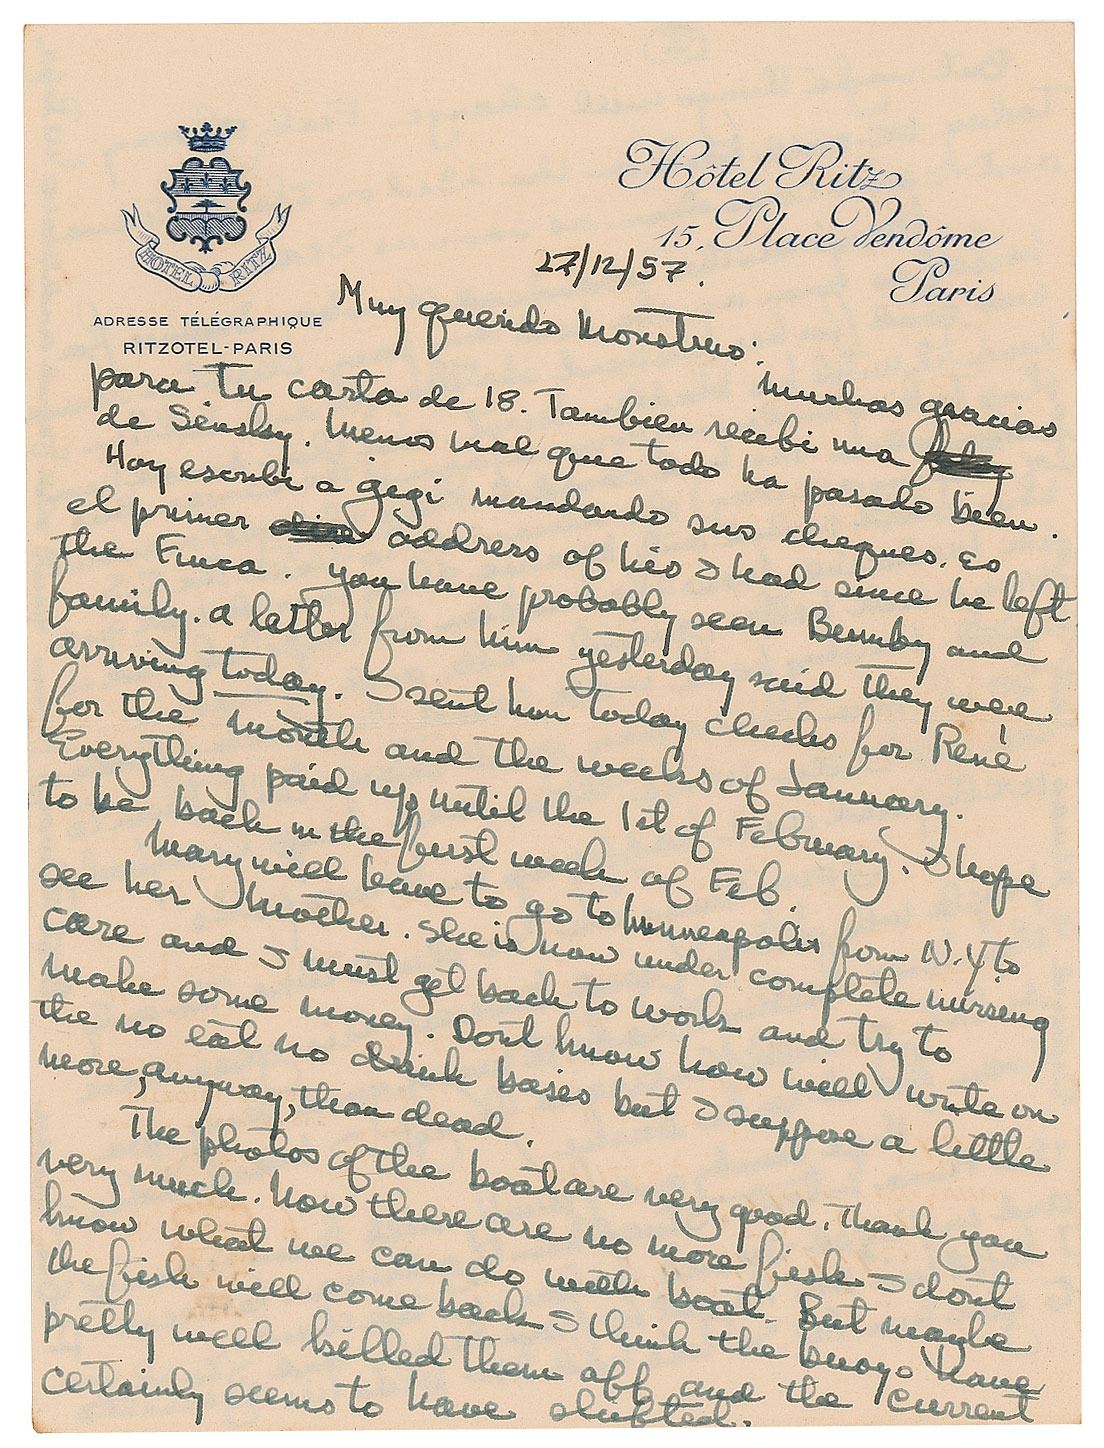 Hôtel Ritz
15, Place Vendôme
Paris
HOTEL RITZ
ADRESSE TÉLÉGRAPHIQUE
RITZOTEL-PARIS
27/12/57.
Muy querido Monstruo:
Muchas gracias
para tu carta de 18. Tambien recibi una
de Sinsky. Menos mal que todo ha pasado bien.
Hoy escribi a gigi mandando sus cheques. Es
el primer address of his I had since he left
the Finca. You have probably seen Bumby and
family. a letter from him yesterday said they were
arriving today. I sent him today checks for René
for the month and the weeks of January.
Everything paid up until the 1st of February. I hope
to be back in the first week of Feb.
Mary will have to go to Minneapolis from N.Y to
see her mother. She is now under complete nursing
care and I must get back to work and try to
make some money. Dont know how well I write on
the no eat no drink basis but I suppose a little
more, anyway, than dead.
The photos of the boat are very good. Thank you
very much. Now there are no more fish I dont
know what we can do with boat. But maybe
the fish will come back I think the buoys have
pretty well billed them off and the current
certainly seems to have shifted.